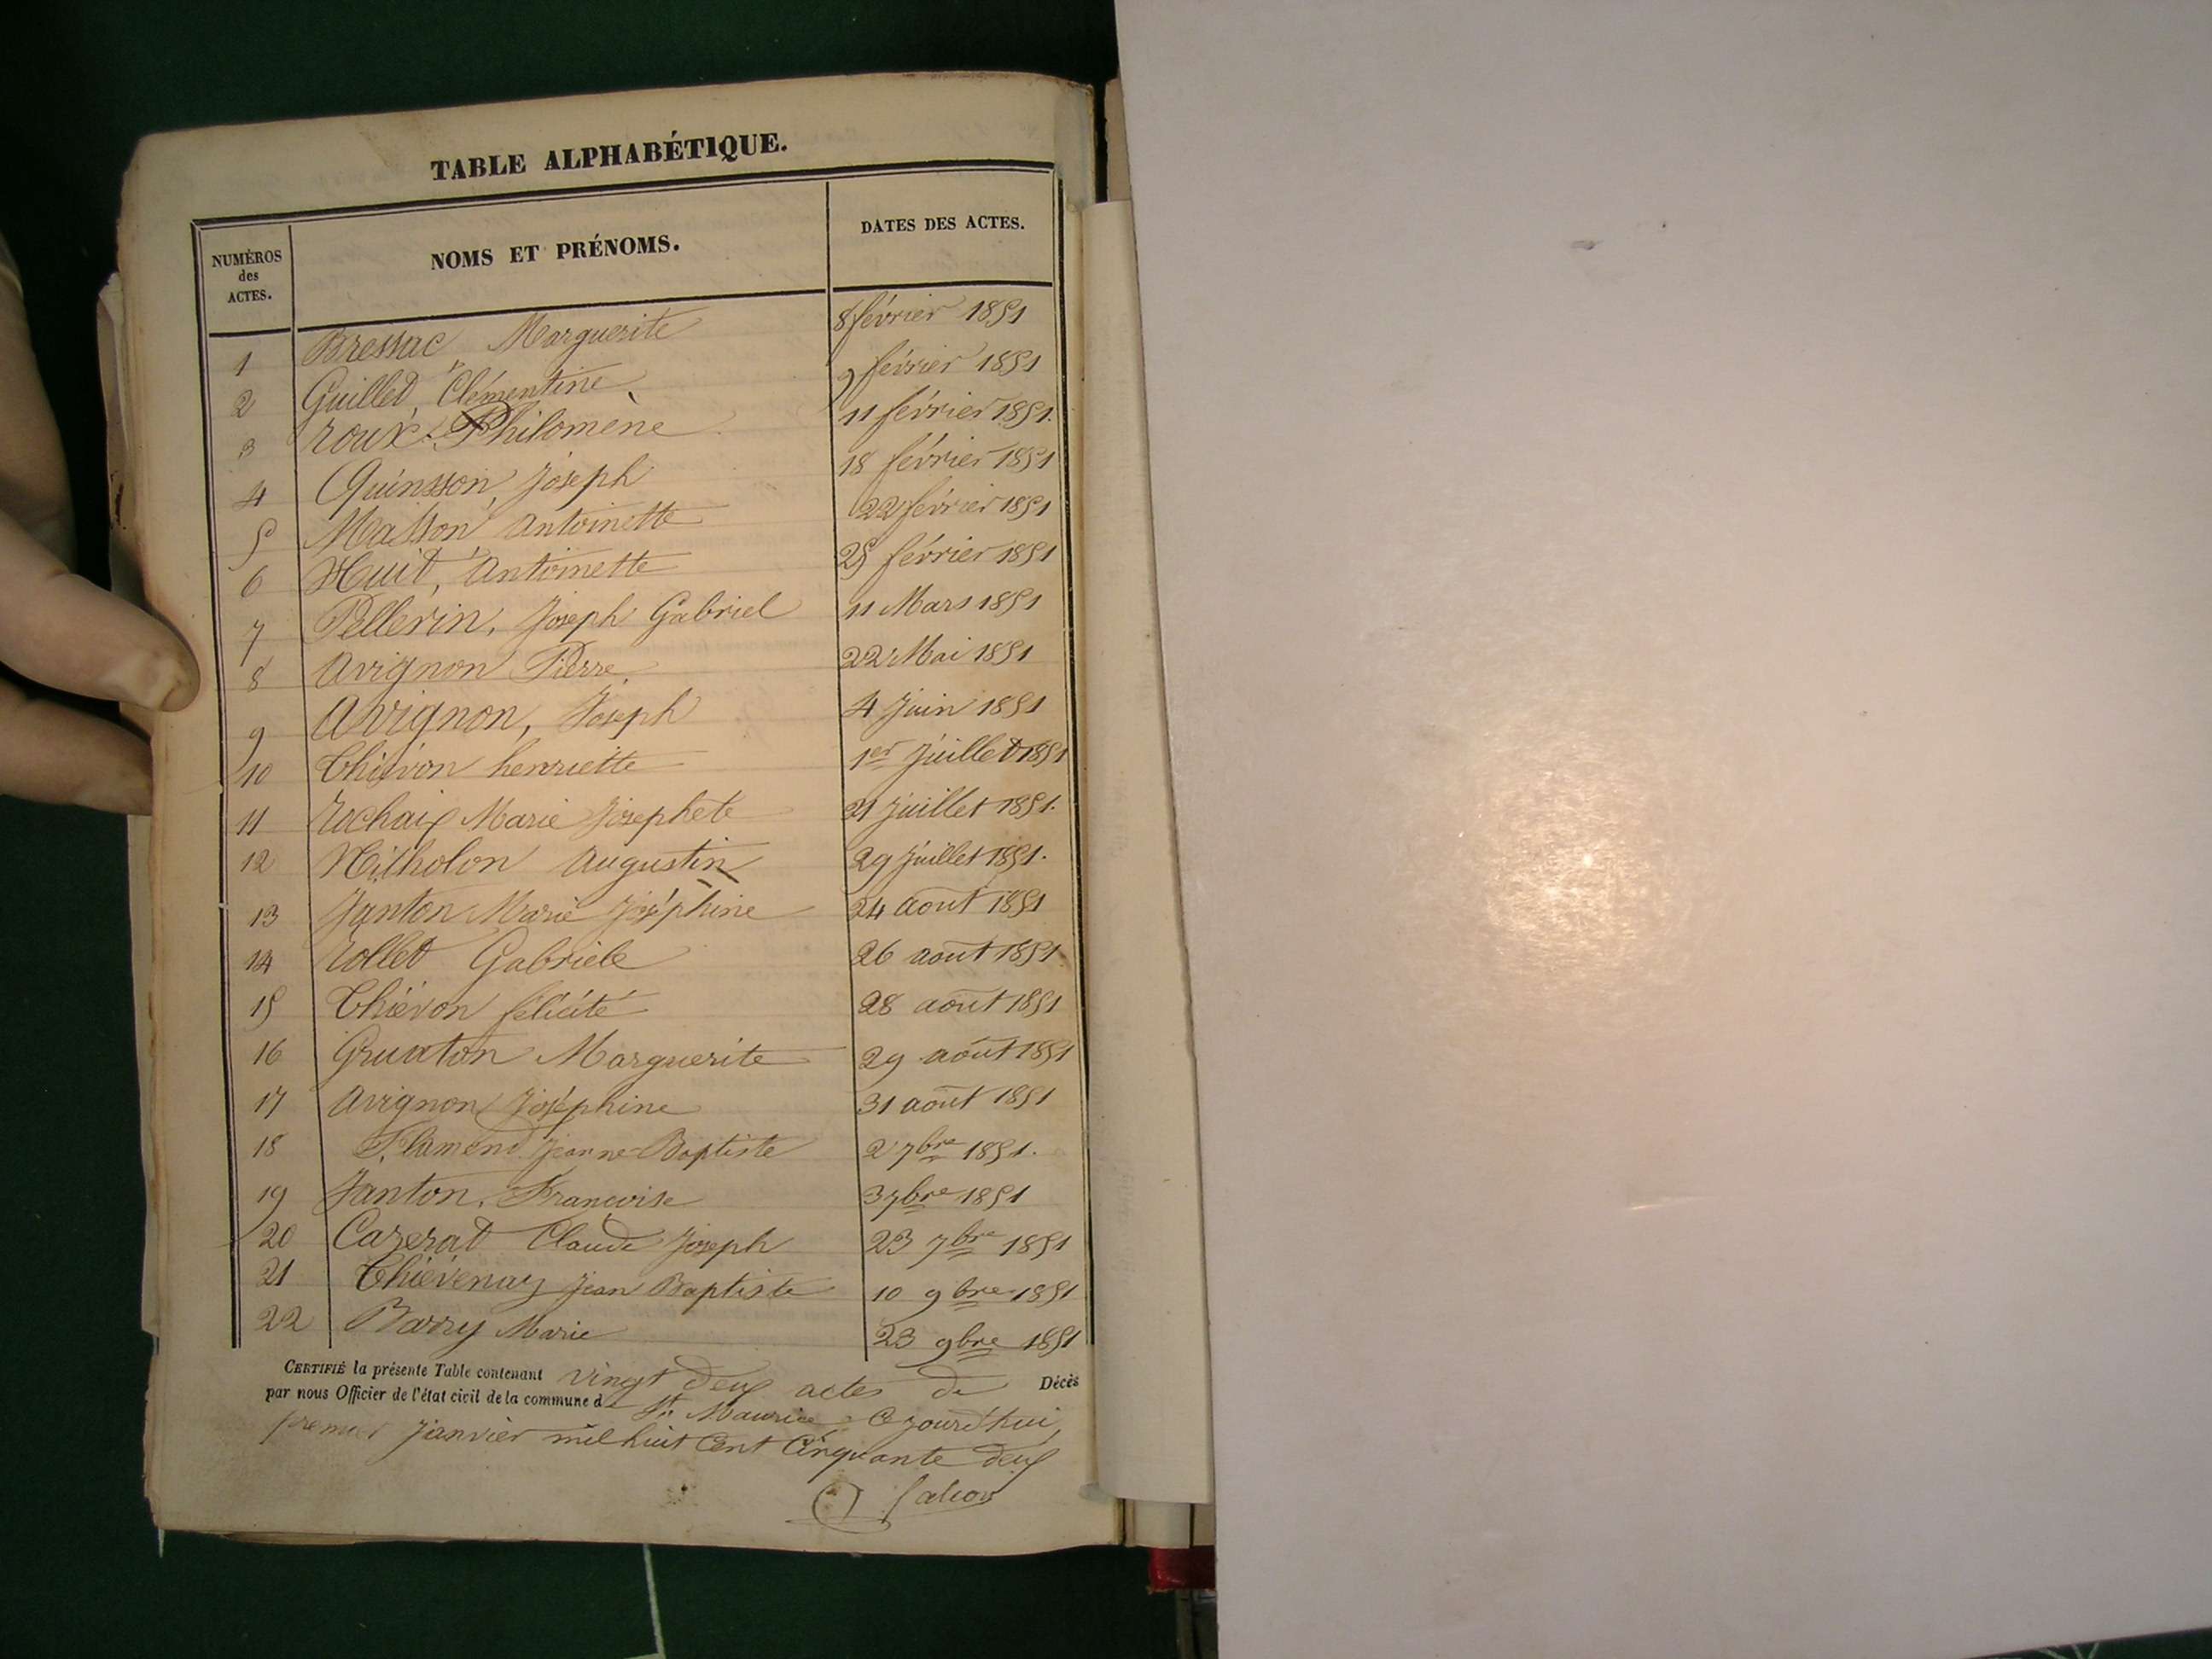 TABLE ALPHABÉTIQUE.
NUMÉROS des ACTES. NOMS ET PRÉNOMS. DATES DES ACTES.
1 Bressac, Marguerite 8 février 1851
2 Guillet, Clémentine 9 février 1851
3 Roux Philomène 11 février 1851.
4 Quinsson, Joseph 18 février 1851
5 Masson Antoinette 22 février 1851
6 Huit, Antoinette 25 février 1851
7 Pellerin, Joseph Gabriel 11 Mars 1851
8 Avignon Pierre. 22 Mai 1851
9 Avignon, Joseph 4 Juin 1851
10 henriette 1er Juillet 1851
11 Rochaix Marie Josephete 21 Juillet 1851.
12 Augustin 29 Juillet 1851.
13 Janton Marie Joséphine 24 aout 1851
14 Rollet Gabriele 26 aout 1851
15 Thiévon félicité 28 août 1851
16 Gruaton Marguerite 29 aout 1851
17 Avignon Joséphine 31 août 1851
18 Flamend Jeanne-Baptiste 2 7bre 1851.
19 Janton, Francoise 3 7bre 1851
20 Cazerat Claude Joseph 23 7bre 1851
21 Thiévenaz Jean Baptiste 10 9bre 1851
22 Barry Marie 23 9bre 1851
CERTIFIÉ la présente Table contenant vingt deux actes de Décès
par nous Officier de l'état civil de la commune de St. Maurice Cejourd'hui,
premier Janvier mil huit Cent Cinquante deux